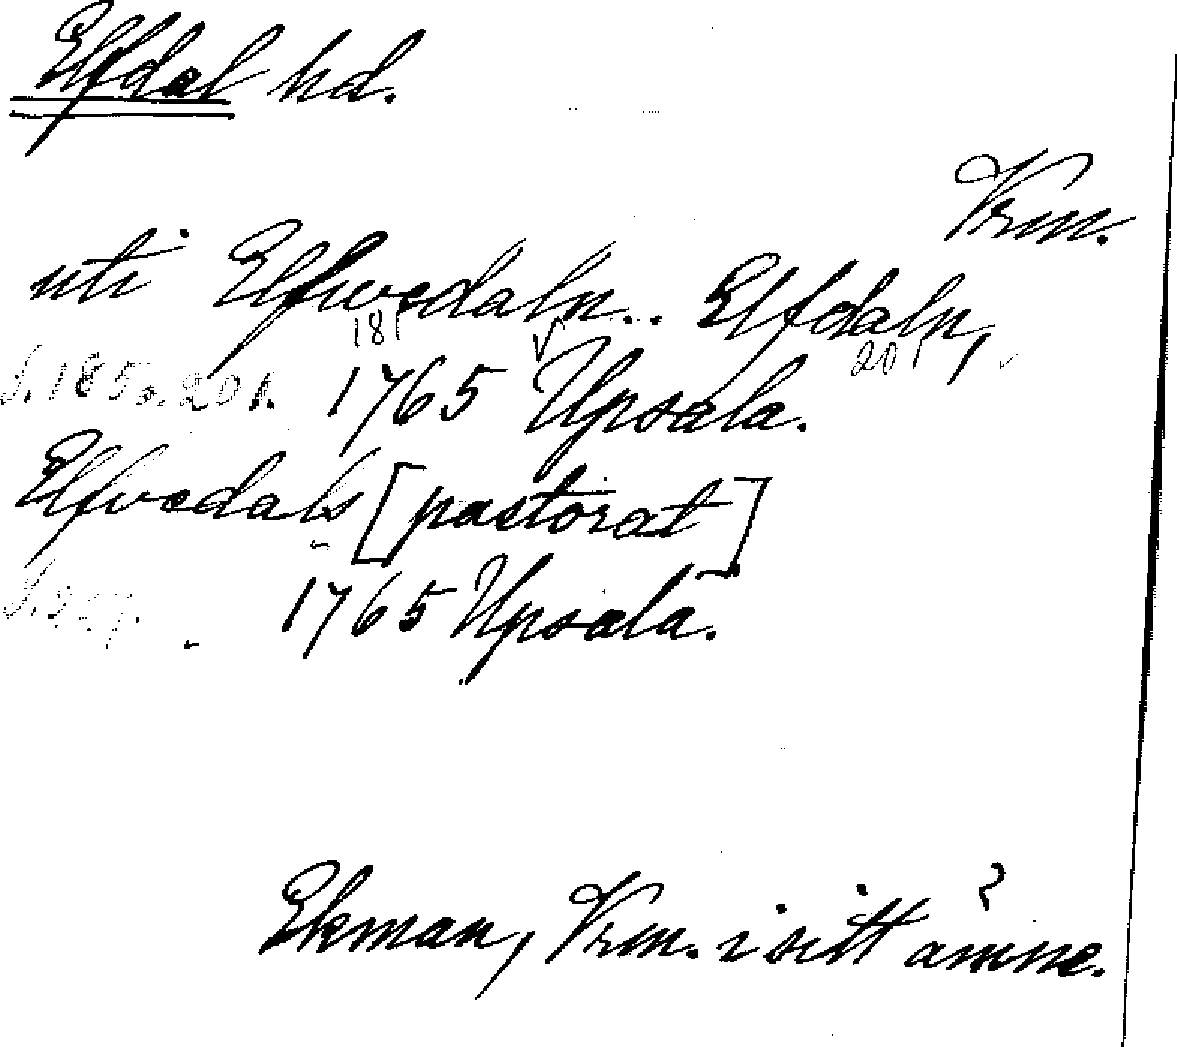 Elfdal hd.
Vrm.
uti Elfwedaln.. Elfdaln,
181 201
S. 185 o. 201. 1765 Upsala.
Elfvedals [pastorat]
1765 Upsala.
Ekman, Vrm. i sitt ämne.